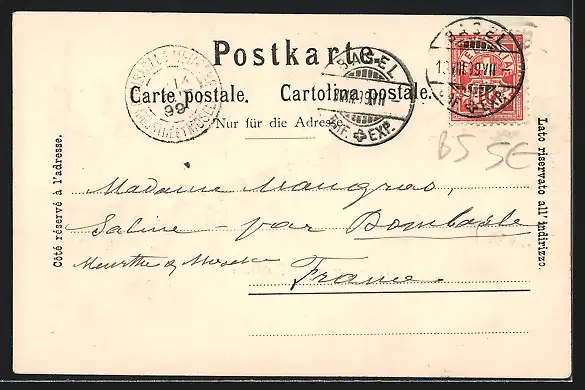 Postkarte.
Carte postale. Cartolina postale.
Nur für die Adresse.
Côté réservé à l'adresse.
Lato riservato all'indirizzo.
BASEL
BRF. EXP.
BASEL
BRF. EXP.
14
99
BS 5€
Madame
Saline - par Dombasle
Meurthe & Moselle
France.